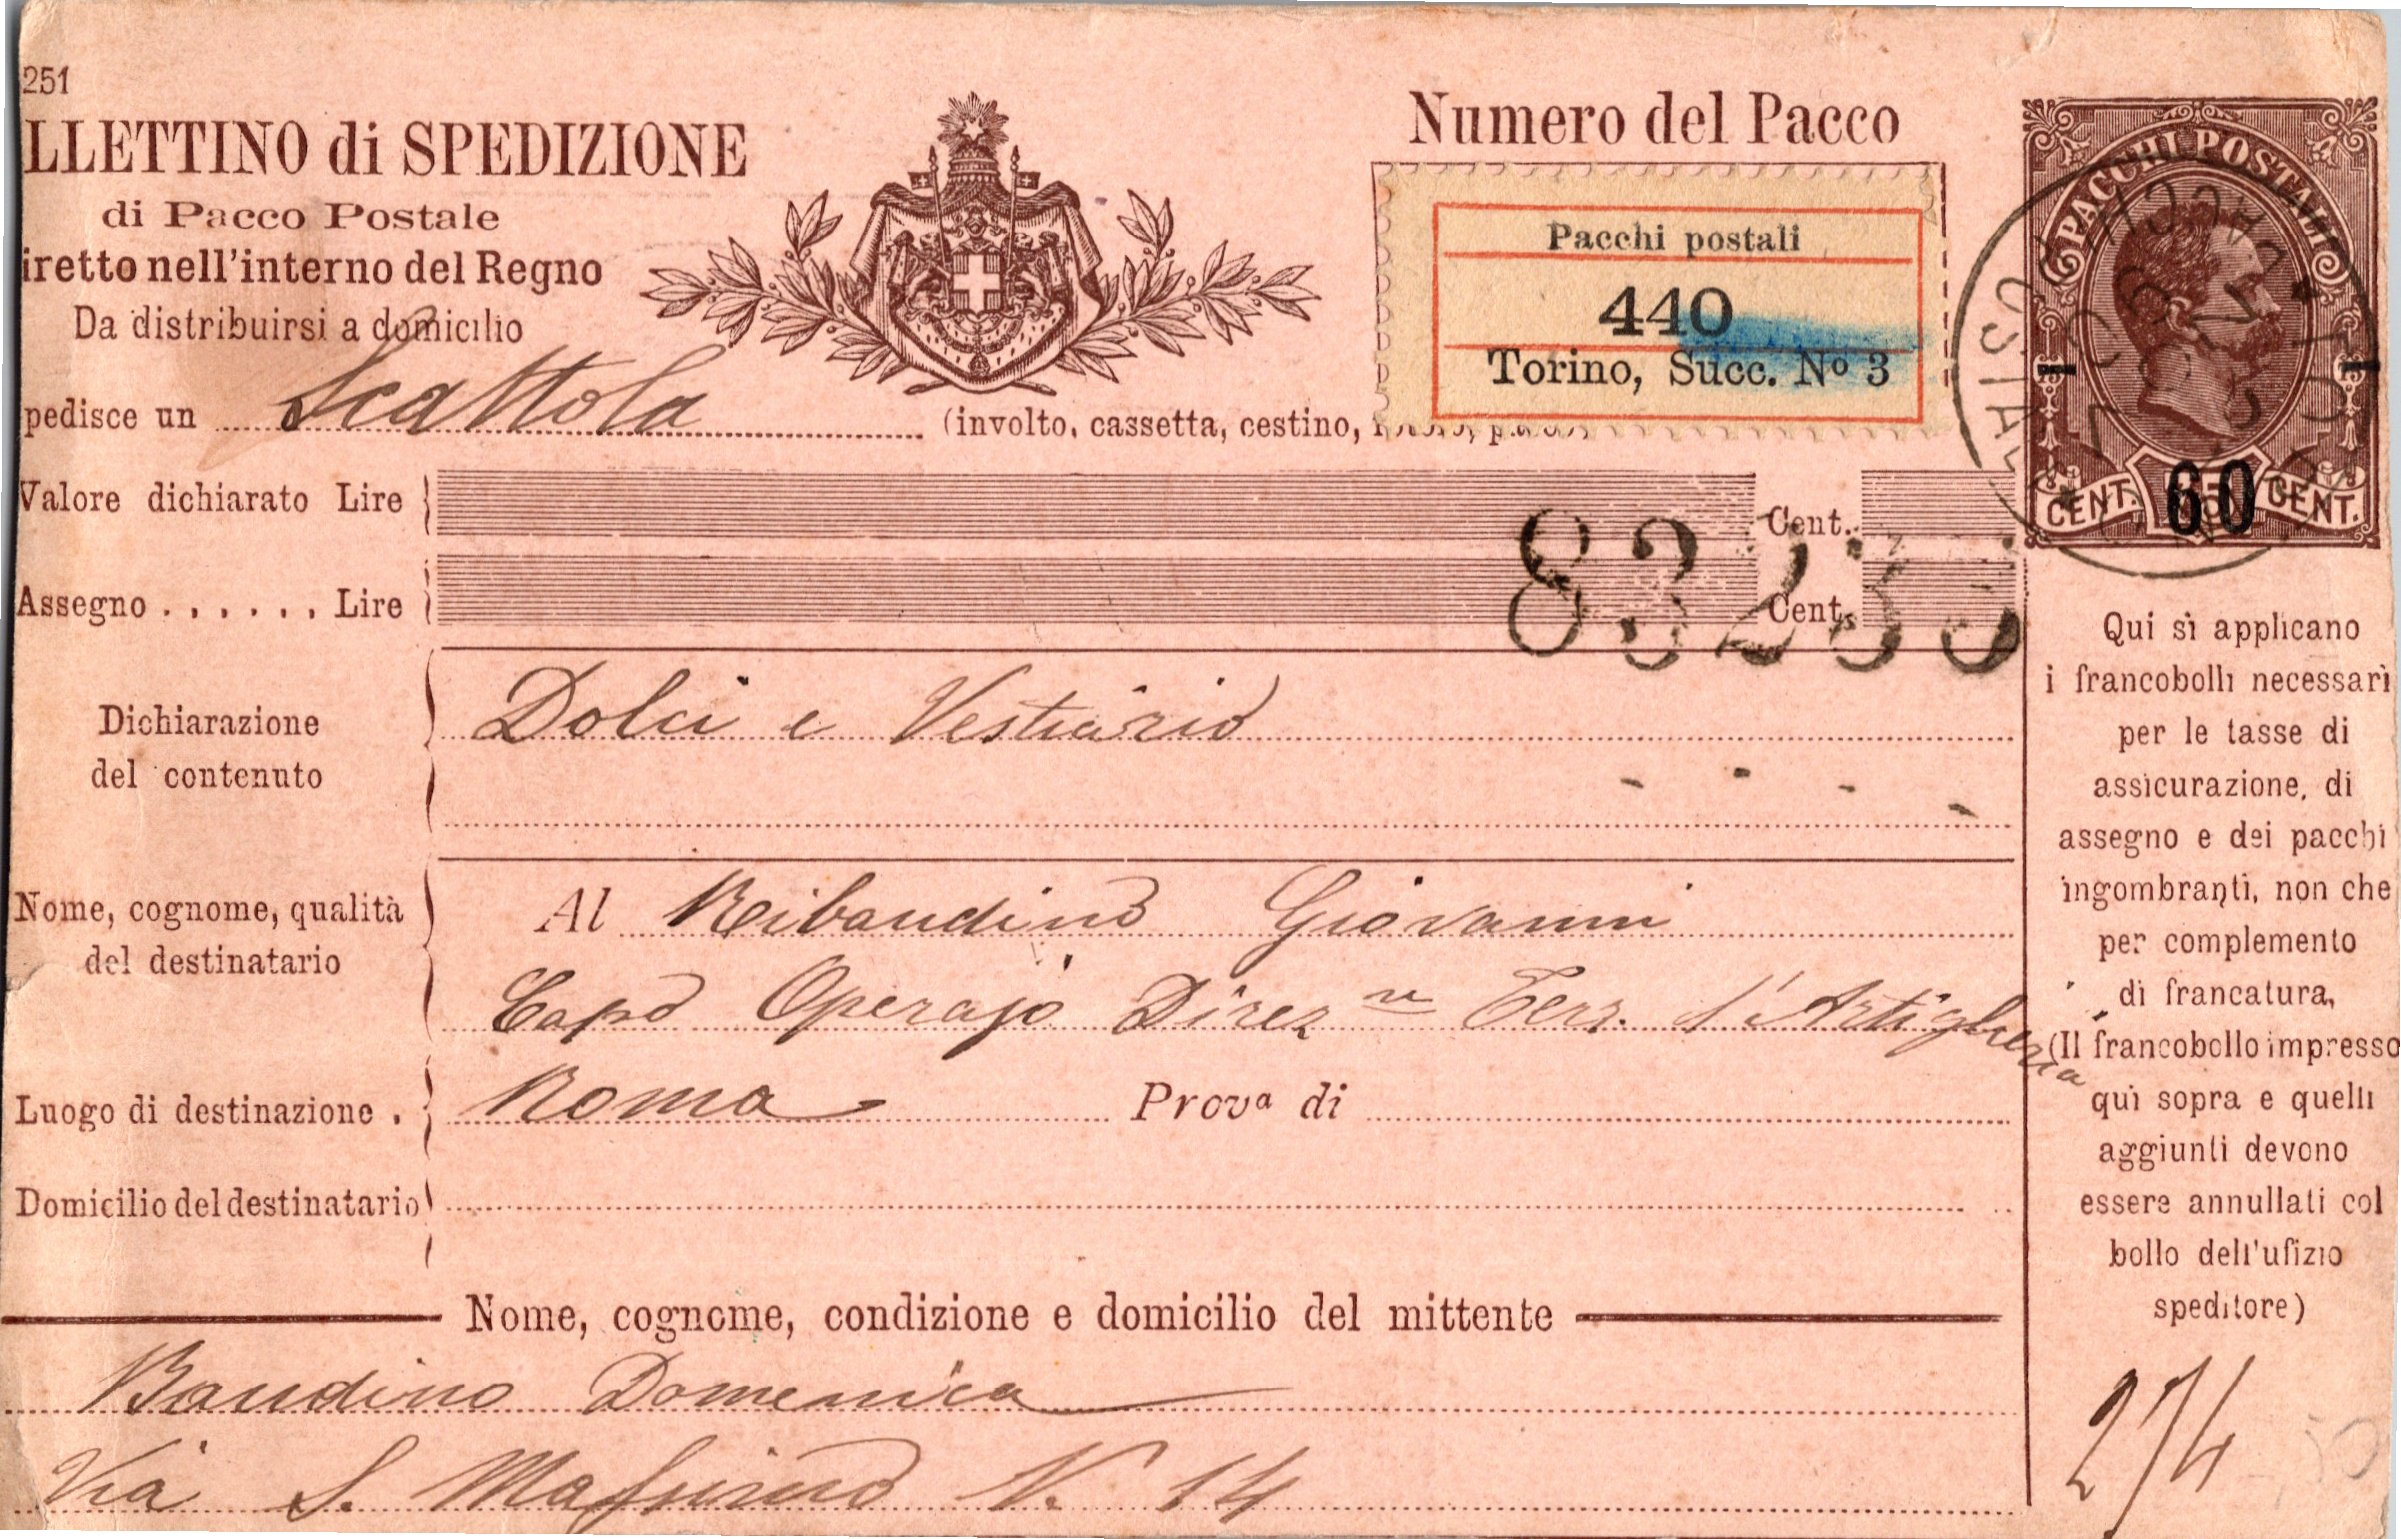 251
LLETTINO di SPEDIZIONE
di Pacco Postale
iretto nell'interno del Regno
Da distribuirsi a domicilio
pedisce un Scattola (involto, cassetta, cestino,
Numero del Pacco
Pacchi postali
440
Torino, Succ. Nº 3
PACCHI POSTALI
CENT. 60 CENT.
Valore dichiarato Lire Cent.
Assegno . . . . . . Lire Cent.
83233
Dichiarazione
del contenuto
Dolci e Vestiario
Nome, cognome, qualità
del destinatario
Al Ribaudino Giovanni
Capo Operajo Direz ne Terr. d'Artiglieria
Luogo di destinazione . Roma Provª di
Domicilio del destinatario
Nome, cognome, condizione e domicilio del mittente
Baudino Domenica
Via S. Massimo N. 14
Qui si applicano
i francobolli necessari
per le tasse di
assicurazione, di
assegno e dei pacchi
ingombranti, non che
per complemento
di francatura,
(Il francobollo impresso
qui sopra e quelli
aggiunti devono
essere annullati col
bollo dell'ufizio
speditore)
274
50